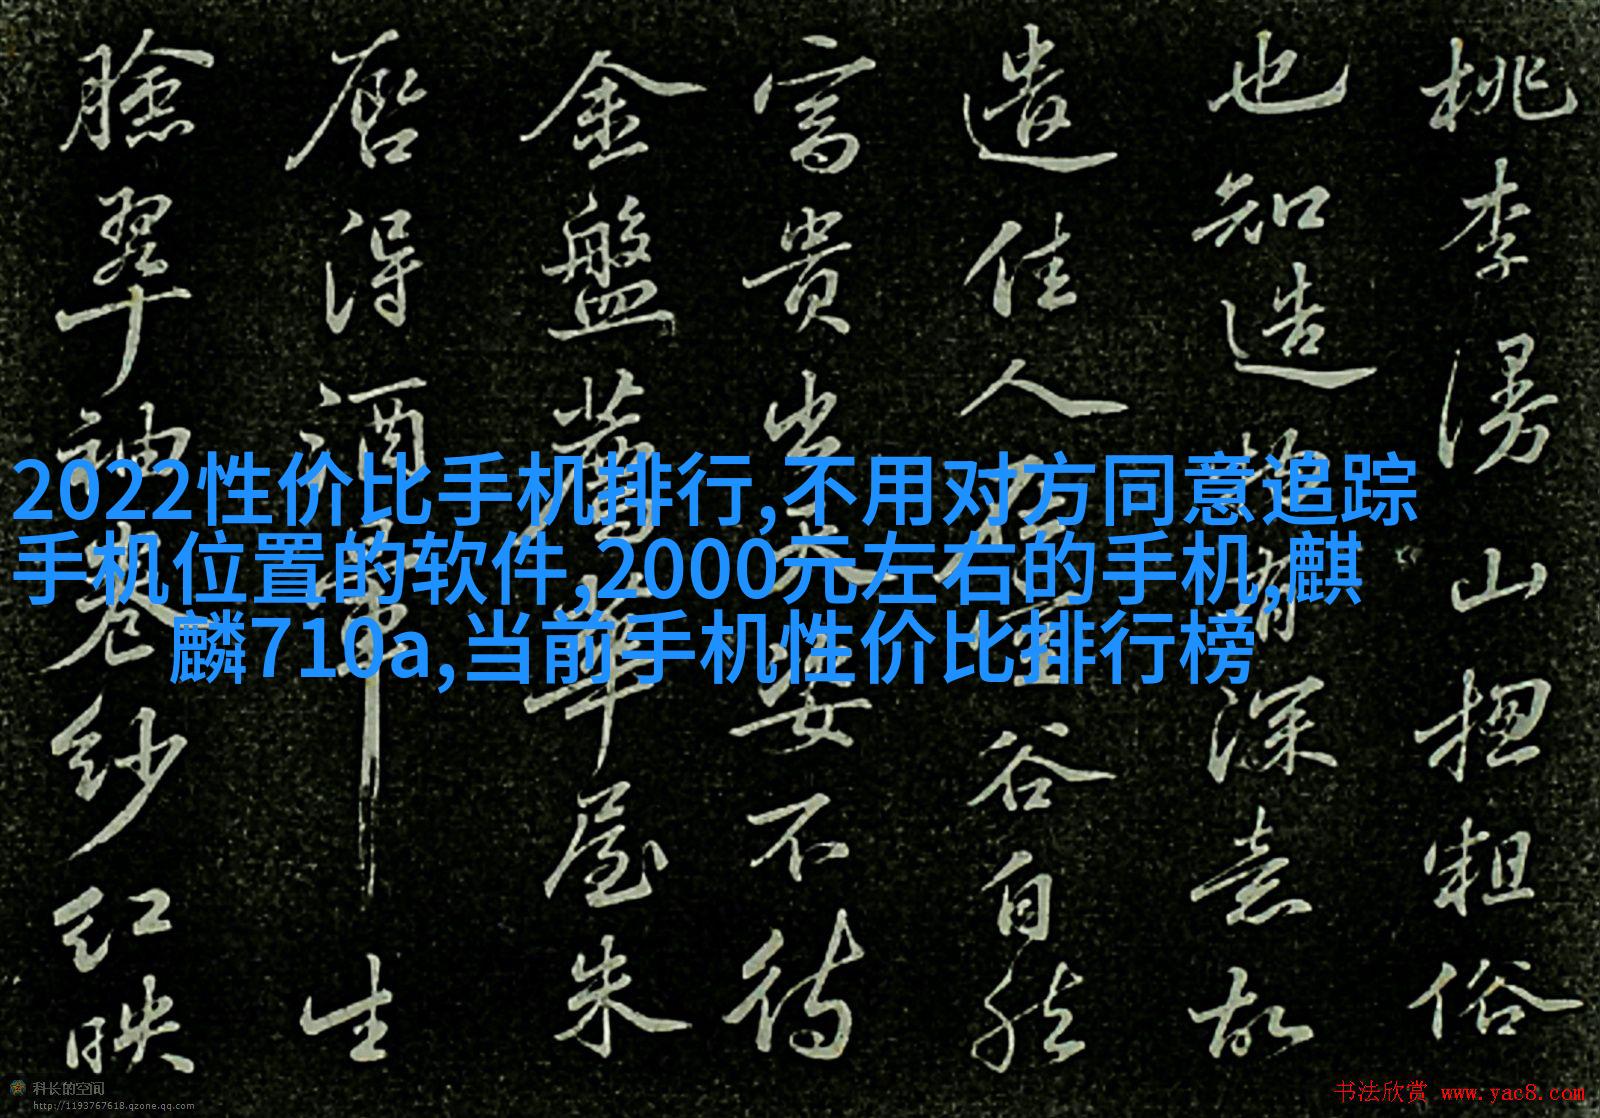 桃李漫山揔粗俗
也知造物有深意故
遣佳人在空谷自然
富貴出天姿不待
金盤薦華屋朱
唇得酒暈生
臉翠袖卷紗紅映
2022性价比手机排行,不用对方同意追踪
手机位置的软件,2000元左右的手机,麒
麟710a,当前手机性价比排行榜
科长的空间
http://1193767618.qzone.qq.com
书法欣赏 www.yac8.com